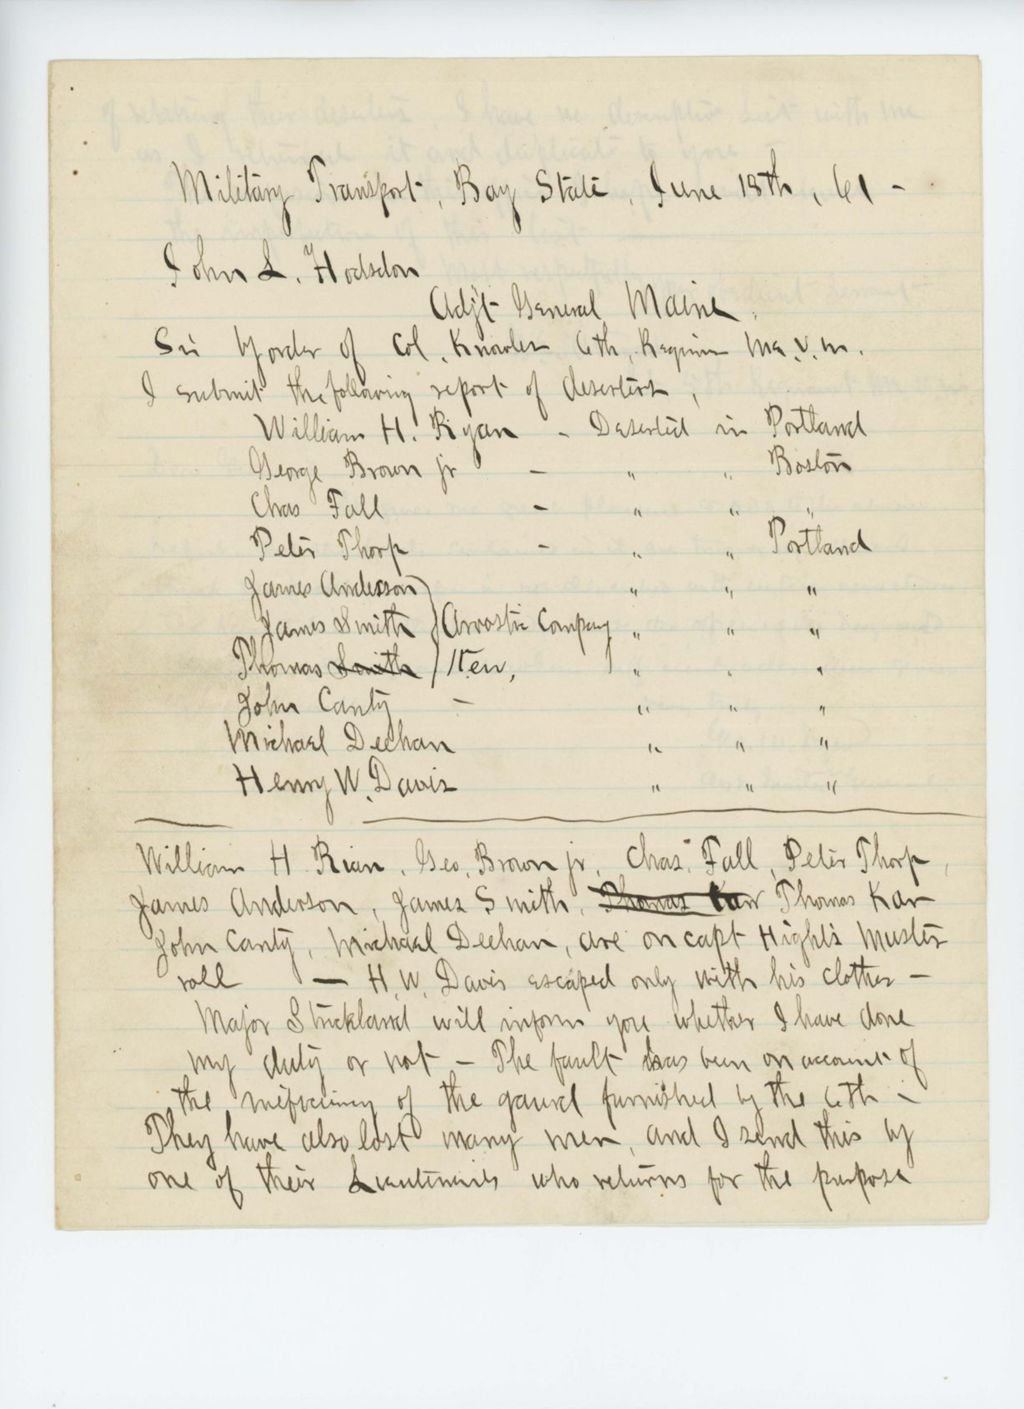 Military Transport, Bay State, June 18th, 61 -
John L. Hodsdon
Adjt General Maine.
Sir by order of Col. Knowles 6th. Regim Me. V. M.
I submit the following report of deserters,
William H. Ryan - Deserted in Portland
George Brown jr - " " Boston
Chas Fall - " " "
Peter Thorp - " " Portland
James Anderson " " "
James Smith Aroostic Company " " "
Thomas Smith " " "
John Canty - " " "
Michael Deehan " " "
Henry W. Davis " " "
William H Rian, Geo. Brown jr, Chas. Fall, Peter Thorp,
James Anderson, James Smith, Thomas Karr Thomas Kar
John Canty, Michael Deehan, are on capt High's Muster
roll — H. W. Davis escaped only with his clothes -
Major Strickland will inform you whether I have done
my duty or not - The fault has been on account of
the inefficiency of the gaurd furnished by the 6th -
They have also lost many men, and I send this by
one of their Lieutenants who returns for the purpose